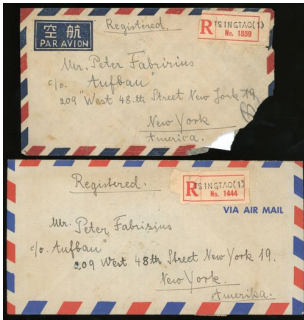 空航
PAR AVION
Registered.
R TSINGTAO(1)
No. 1859
Mr. Peter Fabrizius
c/o. "Aufbau"
209 West 48.th Street New York 19
New York
America.
Registered.
R TSINGTAO(1)
No. 1444
VIA AIR MAIL
Mr. Peter Fabrizius
c/o "Aufbau"
209 West 48th Street New York 19.
New York.
Amerika.